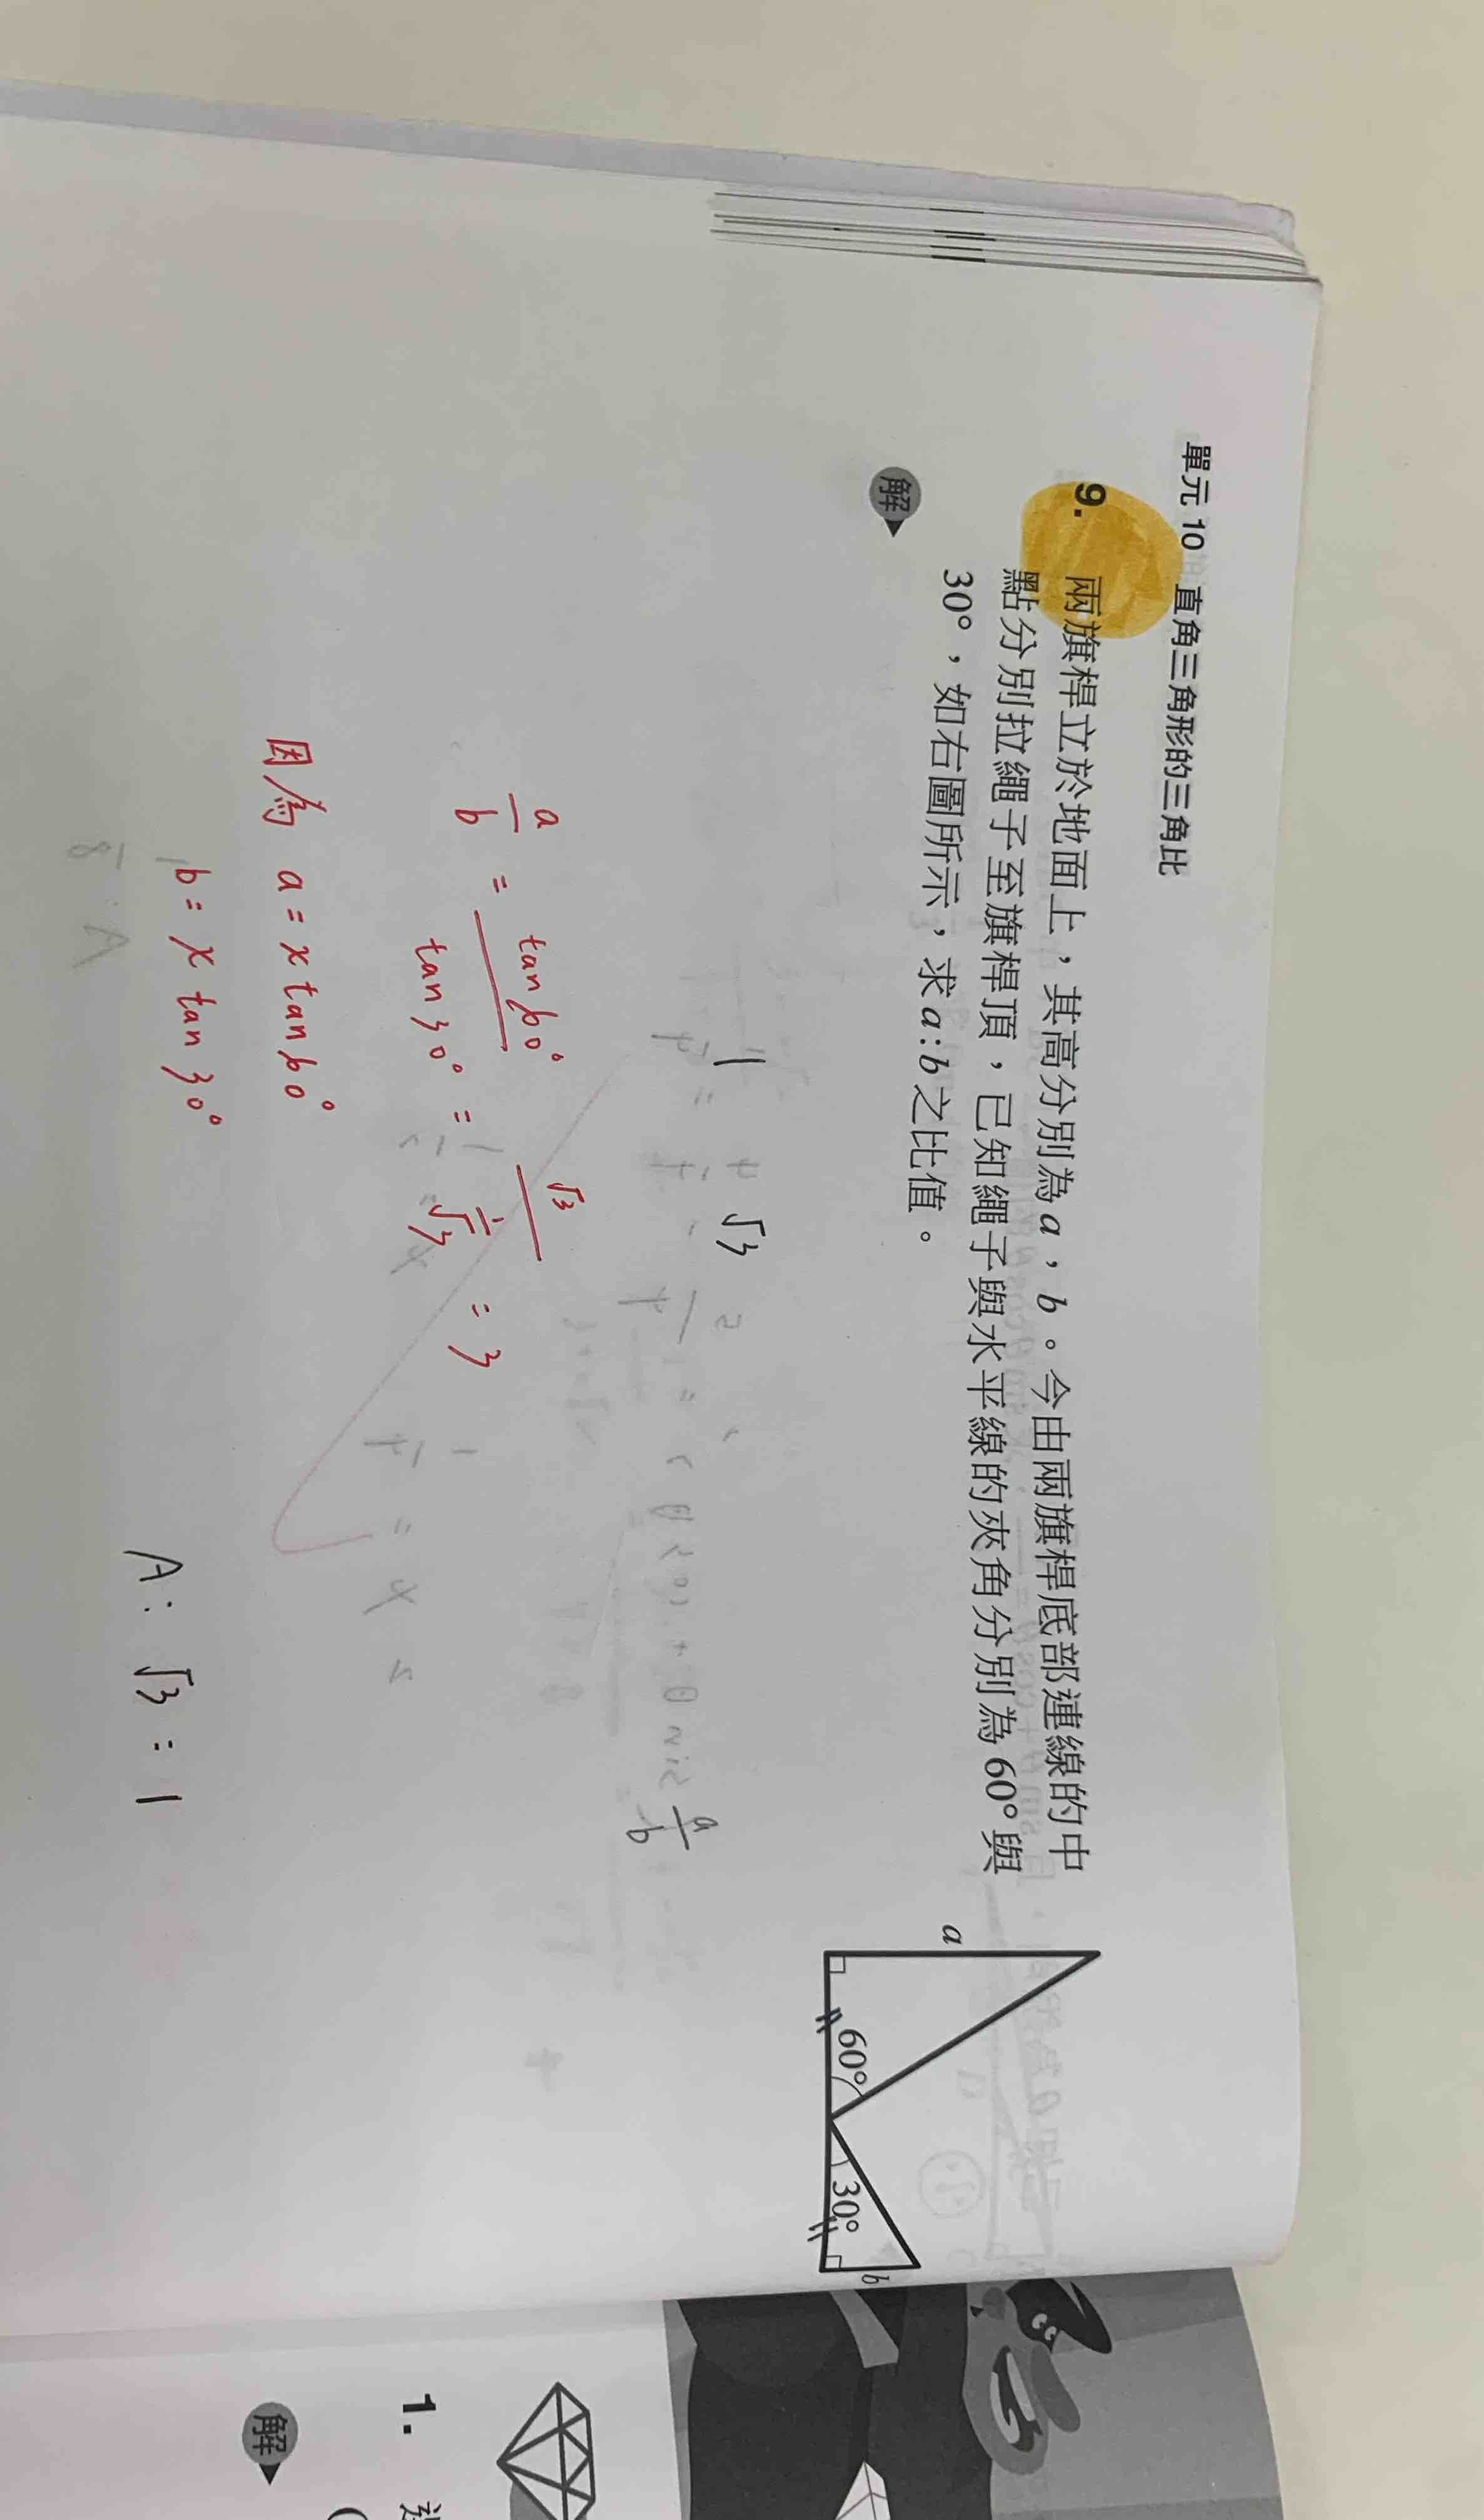 單元 10 直角三角形的三角比
9. 兩旗桿立於地面上,其高分別為 a,b。今由兩旗桿底部連線的中
點分別拉繩子至旗桿頂,已知繩子與水平線的夾角分別為 60° 與
30°,如右圖所示,求 a:b 之比值。
a
60°
30°
b
解
1
√3
a/b
a/b = tan60°/tan30° = √3/(1/√3) = 3
因為 a = x tan60°
b = x tan30°
A: √3 : 1
1.
解